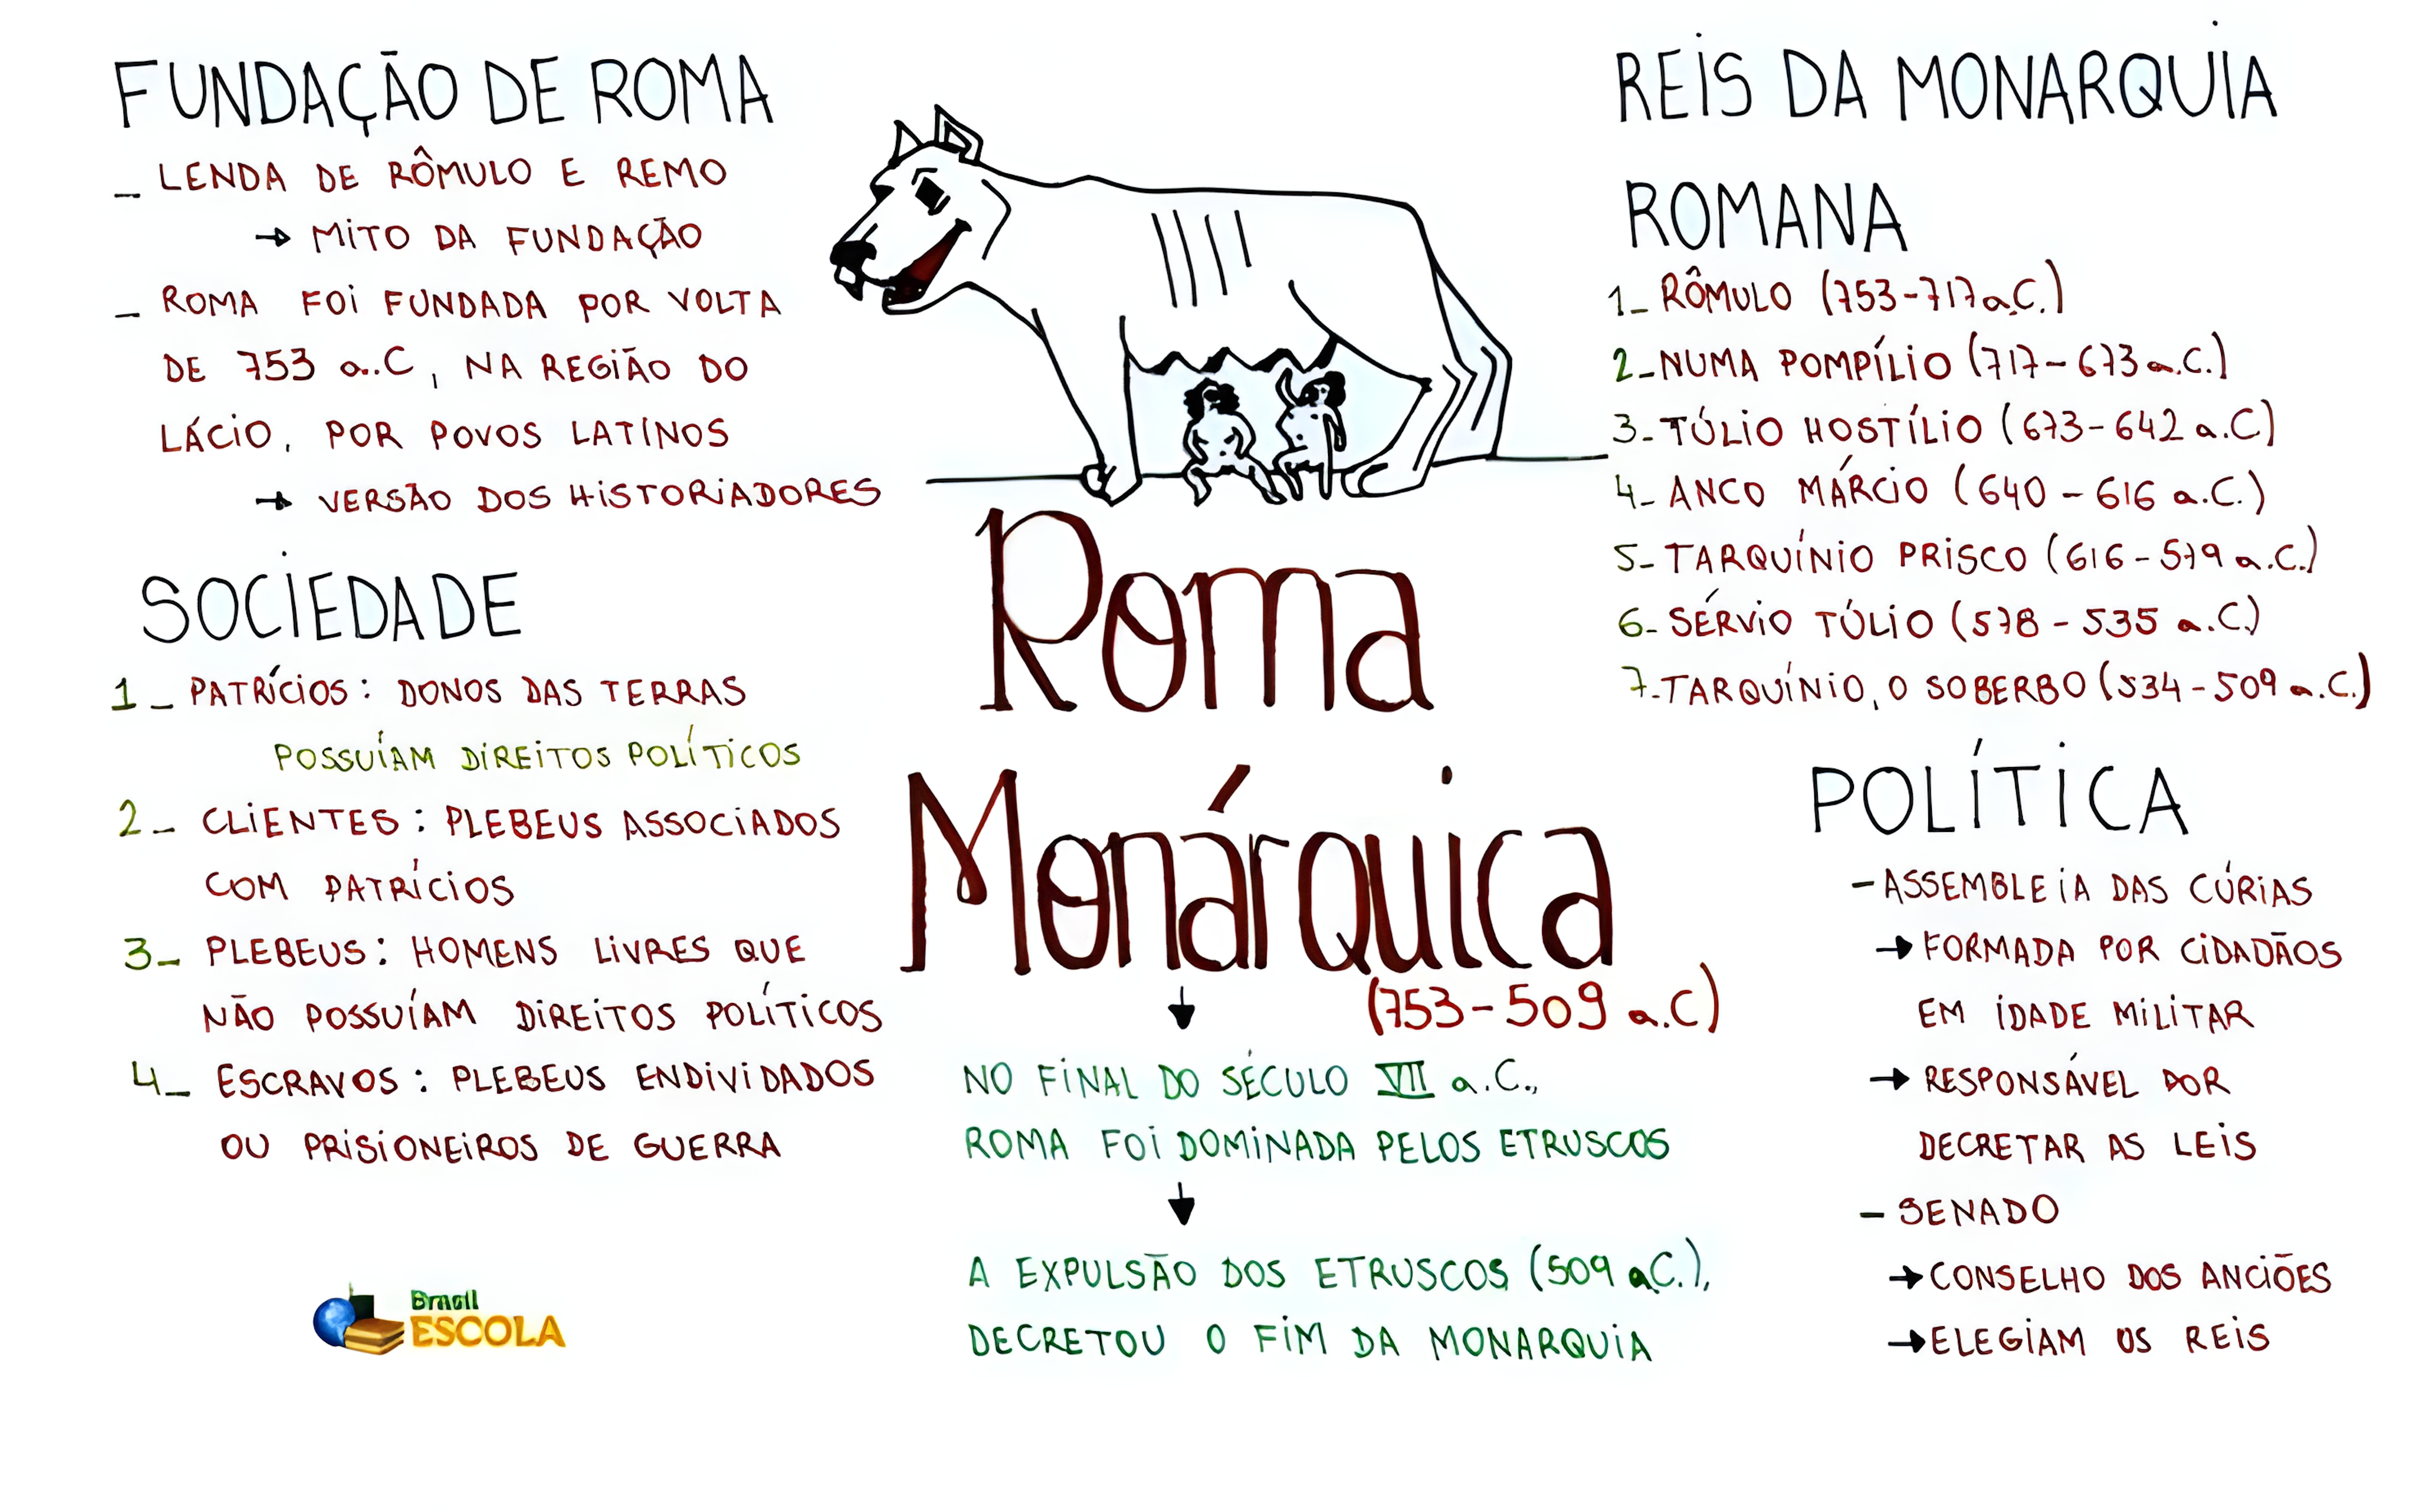 FUNDAÇÃO DE ROMA
_ LENDA DE RÔMULO E REMO
→ MITO DA FUNDAÇÃO
_ ROMA FOI FUNDADA POR VOLTA
DE 753 a.C, NA REGIÃO DO
LÁCIO, POR POVOS LATINOS
→ VERSÃO DOS HISTORIADORES
SOCIEDADE
1_ PATRÍCIOS: DONOS DAS TERRAS
POSSUÍAM DIREITOS POLÍTICOS
2_ CLIENTES: PLEBEUS ASSOCIADOS
COM PATRÍCIOS
3_ PLEBEUS: HOMENS LIVRES QUE
NÃO POSSUÍAM DIREITOS POLÍTICOS
4_ ESCRAVOS: PLEBEUS ENDIVIDADOS
OU PRISIONEIROS DE GUERRA
Brasil
ESCOLA
Roma
Monárquica
(753-509 a.C)
NO FINAL DO SÉCULO VII a.C.,
ROMA FOI DOMINADA PELOS ETRUSCOS
A EXPULSÃO DOS ETRUSCOS (509 a.C.),
DECRETOU O FIM DA MONARQUIA
REIS DA MONARQUIA
ROMANA
1_ RÔMULO (753-717 a.C.)
2_NUMA POMPÍLIO (717-673 a.C.)
3-TÚLIO HOSTÍLIO (673-642 a.C)
4-ANCO MÁRCIO (640-616 a.C.)
5-TARQUÍNIO PRISCO (616-579 a.C.)
6-SÉRVIO TÚLIO (578-535 a.C.)
7-TARQUÍNIO, O SOBERBO (534-509 a.C.)
POLÍTICA
-ASSEMBLEIA DAS CÚRIAS
→ FORMADA POR CIDADÃOS
EM IDADE MILITAR
→ RESPONSÁVEL POR
DECRETAR AS LEIS
- SENADO
→ CONSELHO DOS ANCIÕES
→ ELEGIAM OS REIS